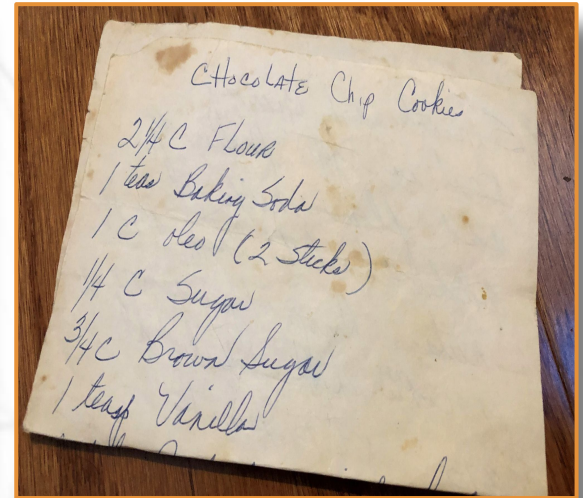 CHocoLATE Chip Cookies
2¼ C Flour
1 teas Baking Soda
1 C oleo (2 Sticks)
¼ C Sugar
¾ C Brown Sugar
1 teasp Vanilla